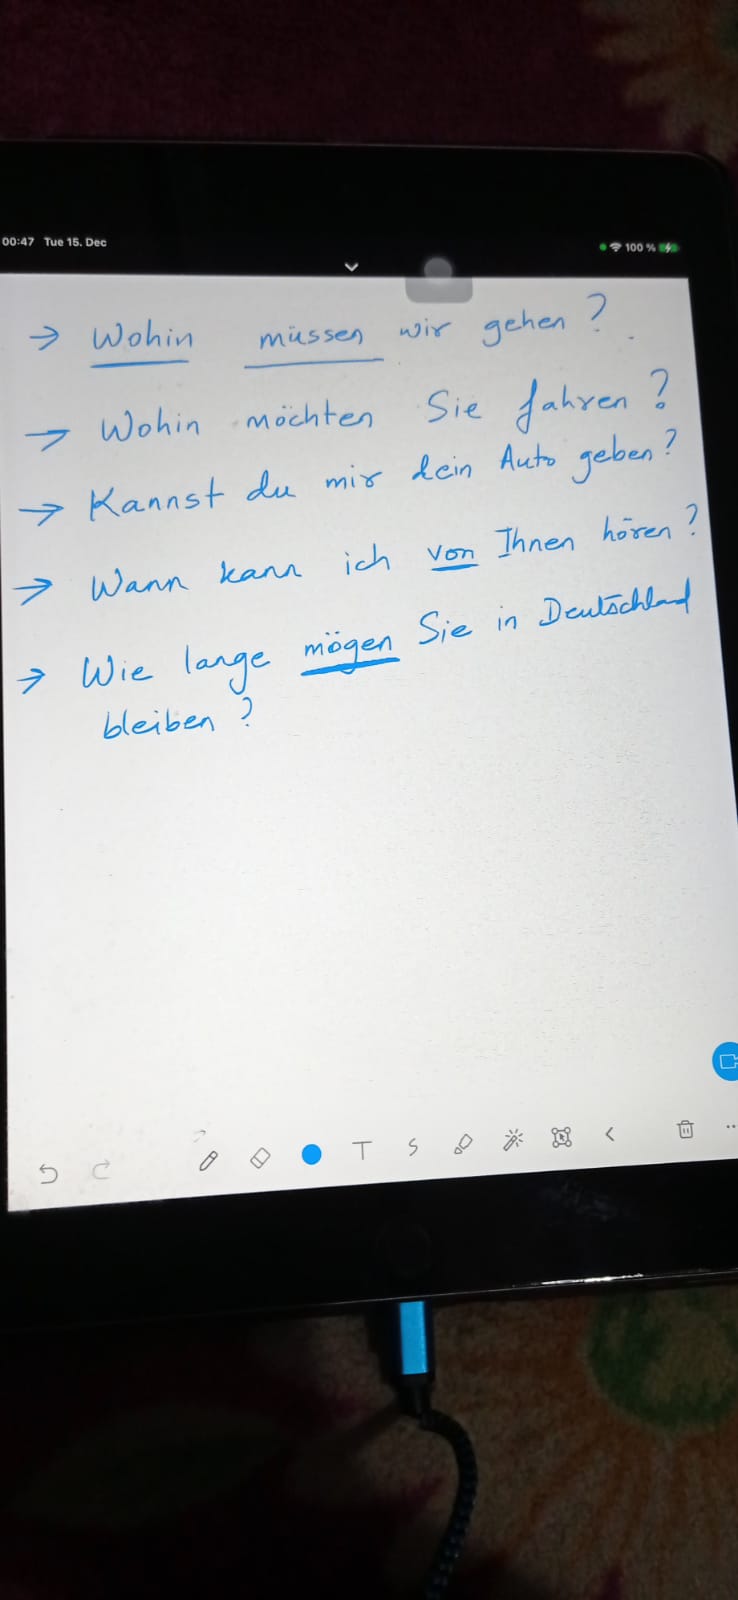 00:47 Tue 15. Dec
100 %
→ Wohin müssen wir gehen?
→ Wohin möchten Sie fahren?
→ Kannst du mir dein Auto geben?
→ Wann kann ich von Ihnen hören?
→ Wie lange mögen Sie in Deutschland
bleiben?
T